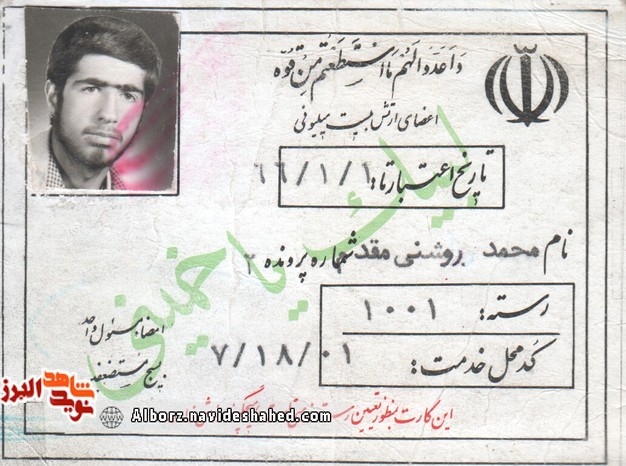 وَاَعِدّوا لَهُم مَا اسْتَطَعْتُم مِنْ قُوَّه
اعضای ارتش بیست میلیونی
تاریخ اعتبار تا: ۶۶/۱/۱
نام محمد روشنی مقد شماره پرونده ۲
رسته: ۱۰۰۱
کد محل خدمت: ۷/۱۸/۰۱
لبیک یا خمینی
امضاء مسئول واحد
بسیج مستضعفین
این کارت بمنظور تعیین
شاهد
نوید
البرز
Alborz.navideshahed.com